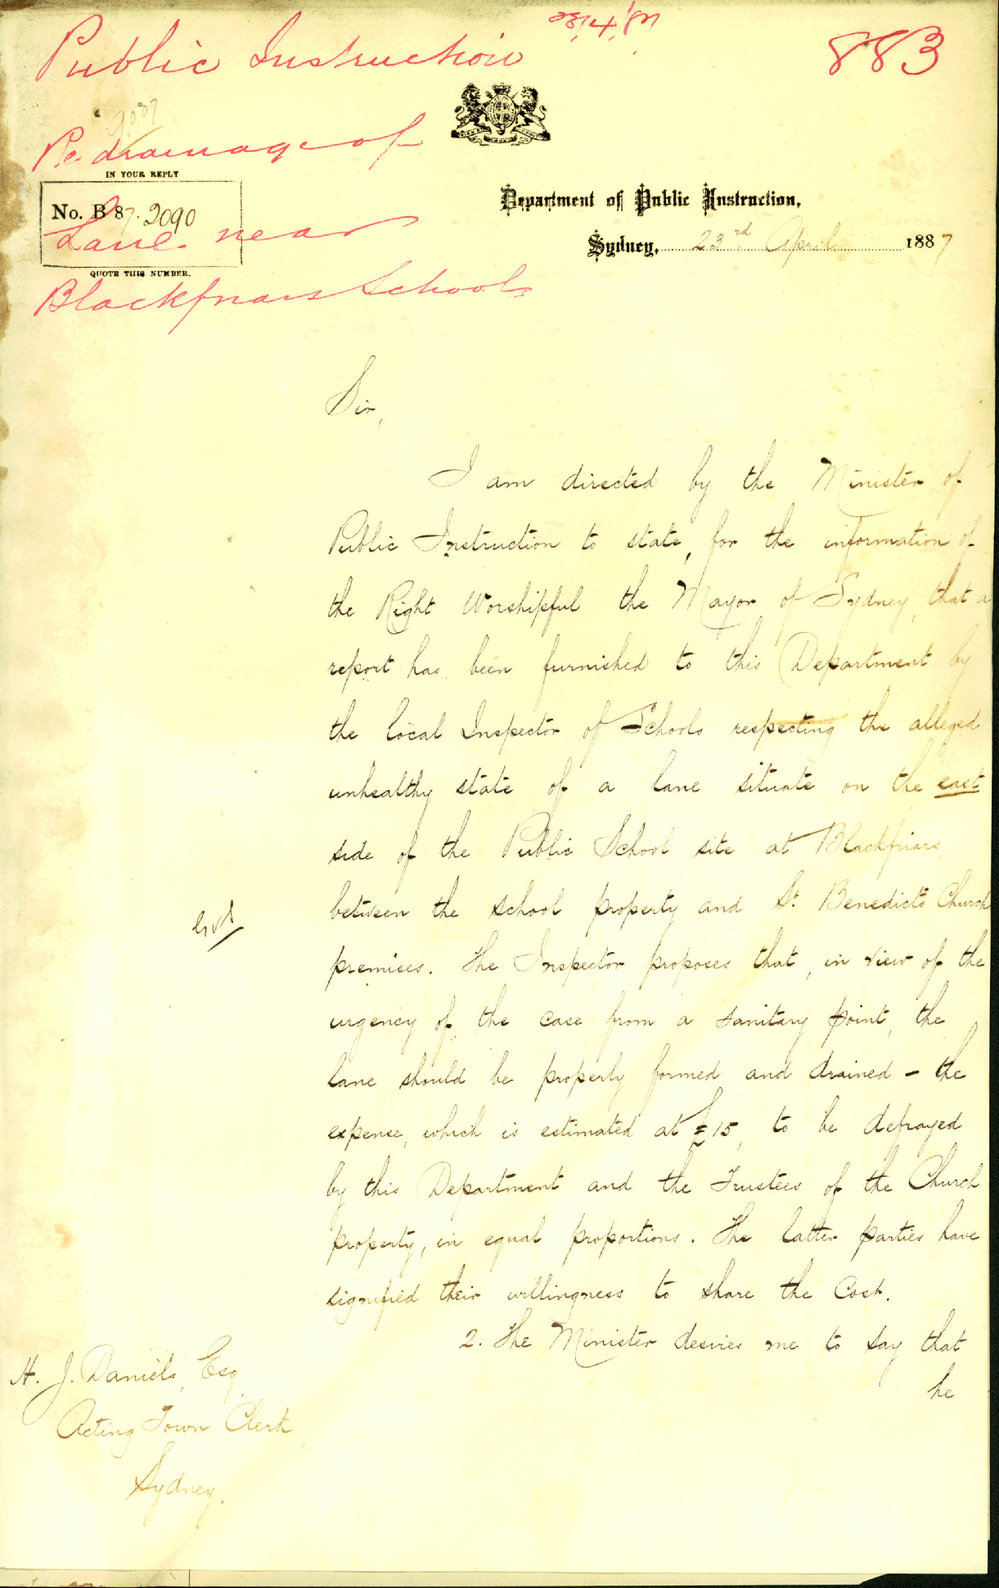 Public Instruction
23/4/87
883
Re drainage of
IN YOUR REPLY
No. B 87.2090
Lane near
QUOTE THIS NUMBER.
Blackfriars School
Department of Public Instruction,
Sydney, 23rd April 1887
Sir,
I am directed by the Minister of
Public Instruction to state, for the information of
the Right Worshipful the Mayor of Sydney, that a
report has been furnished to this Department by
the local Inspector of Schools respecting the alleged
unhealthy state of a lane situate on the east
side of the Public School site at Blackfriars
between the school property and St. Benedict's Church
premises. The Inspector proposes that, in view of the
urgency of the case from a sanitary point, the
lane should be properly formed and drained - the
expense, which is estimated at £15, to be defrayed
by this Department and the Trustees of the Church
property, in equal proportions. The latter parties have
signified their willingness to share the cost.
2. The Minister desires me to say that
he
H. J. Daniels, Esq
Acting Town Clerk
Sydney.